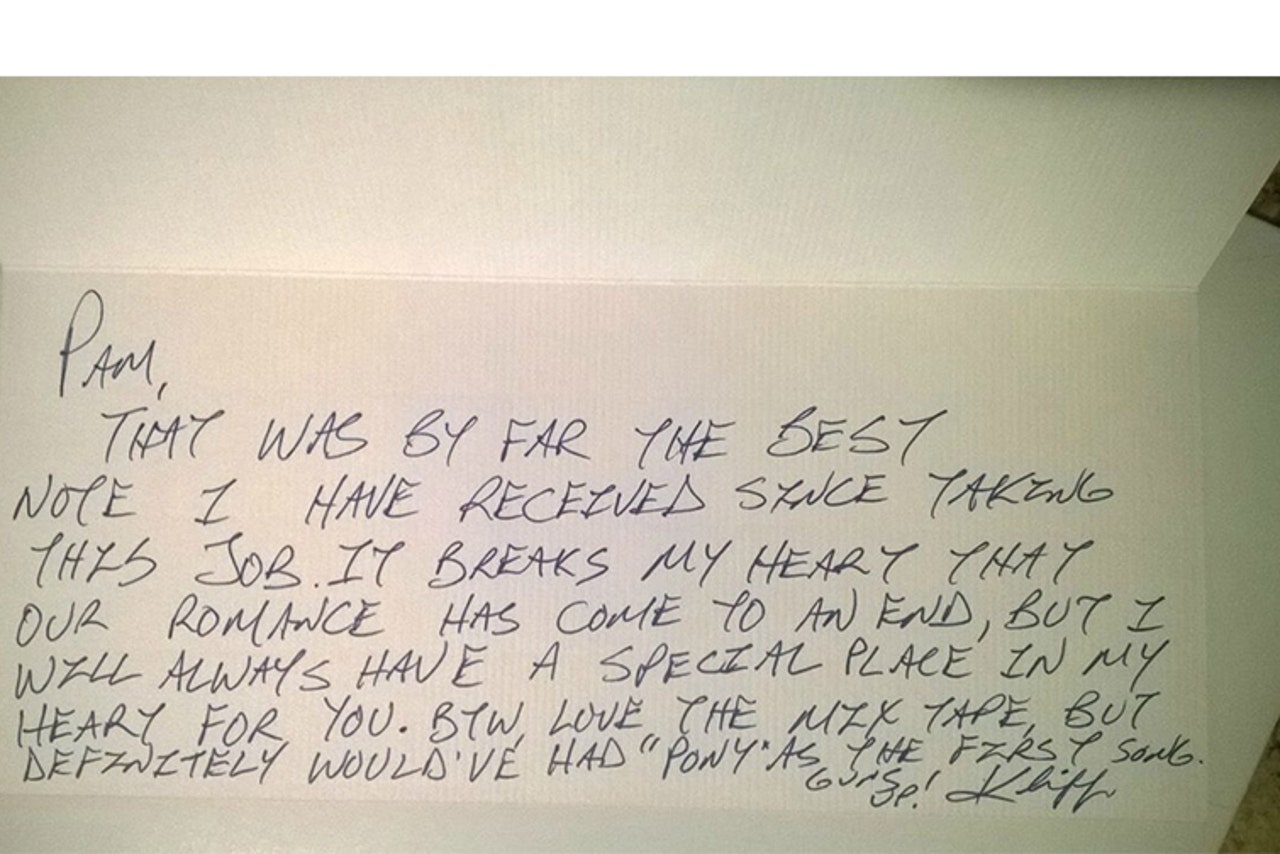 PAM,
THAT WAS BY FAR THE BEST
NOTE I HAVE RECEIVED SINCE TAKING
THIS JOB. IT BREAKS MY HEART THAT
OUR ROMANCE HAS COME TO AN END, BUT I
WILL ALWAYS HAVE A SPECIAL PLACE IN MY
HEART FOR YOU. BTW, LOVE THE MIX TAPE, BUT
DEFINITELY WOULD'VE HAD "PONY" AS THE FIRST SONG.
GUNS UP! Kliff